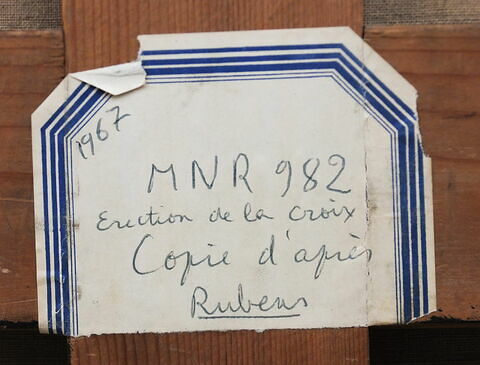 1967
MNR 982
Erection de la Croix
Copie d'après
Rubens